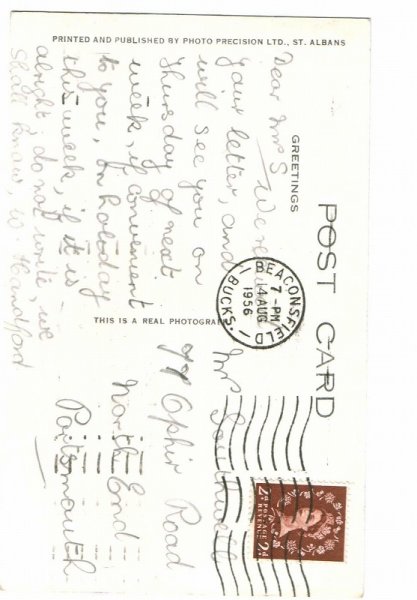 POST CARD
GREETINGS
PRINTED AND PUBLISHED BY PHOTO PRECISION LTD., ST. ALBANS
THIS IS A REAL PHOTOGRAPH
Dear Mrs S
We received
your letter, and
will see you on
Thursday of next
week, if convenient
to you, on holiday
this week, if it is
alright do not write, we
shall know, W. Handford
BEACONSFIELD
7-PM
14 AUG
1956
BUCKS.
2D POSTAGE REVENUE 2D
Mrs Southwell
Ophir Road
North End
Portsmouth